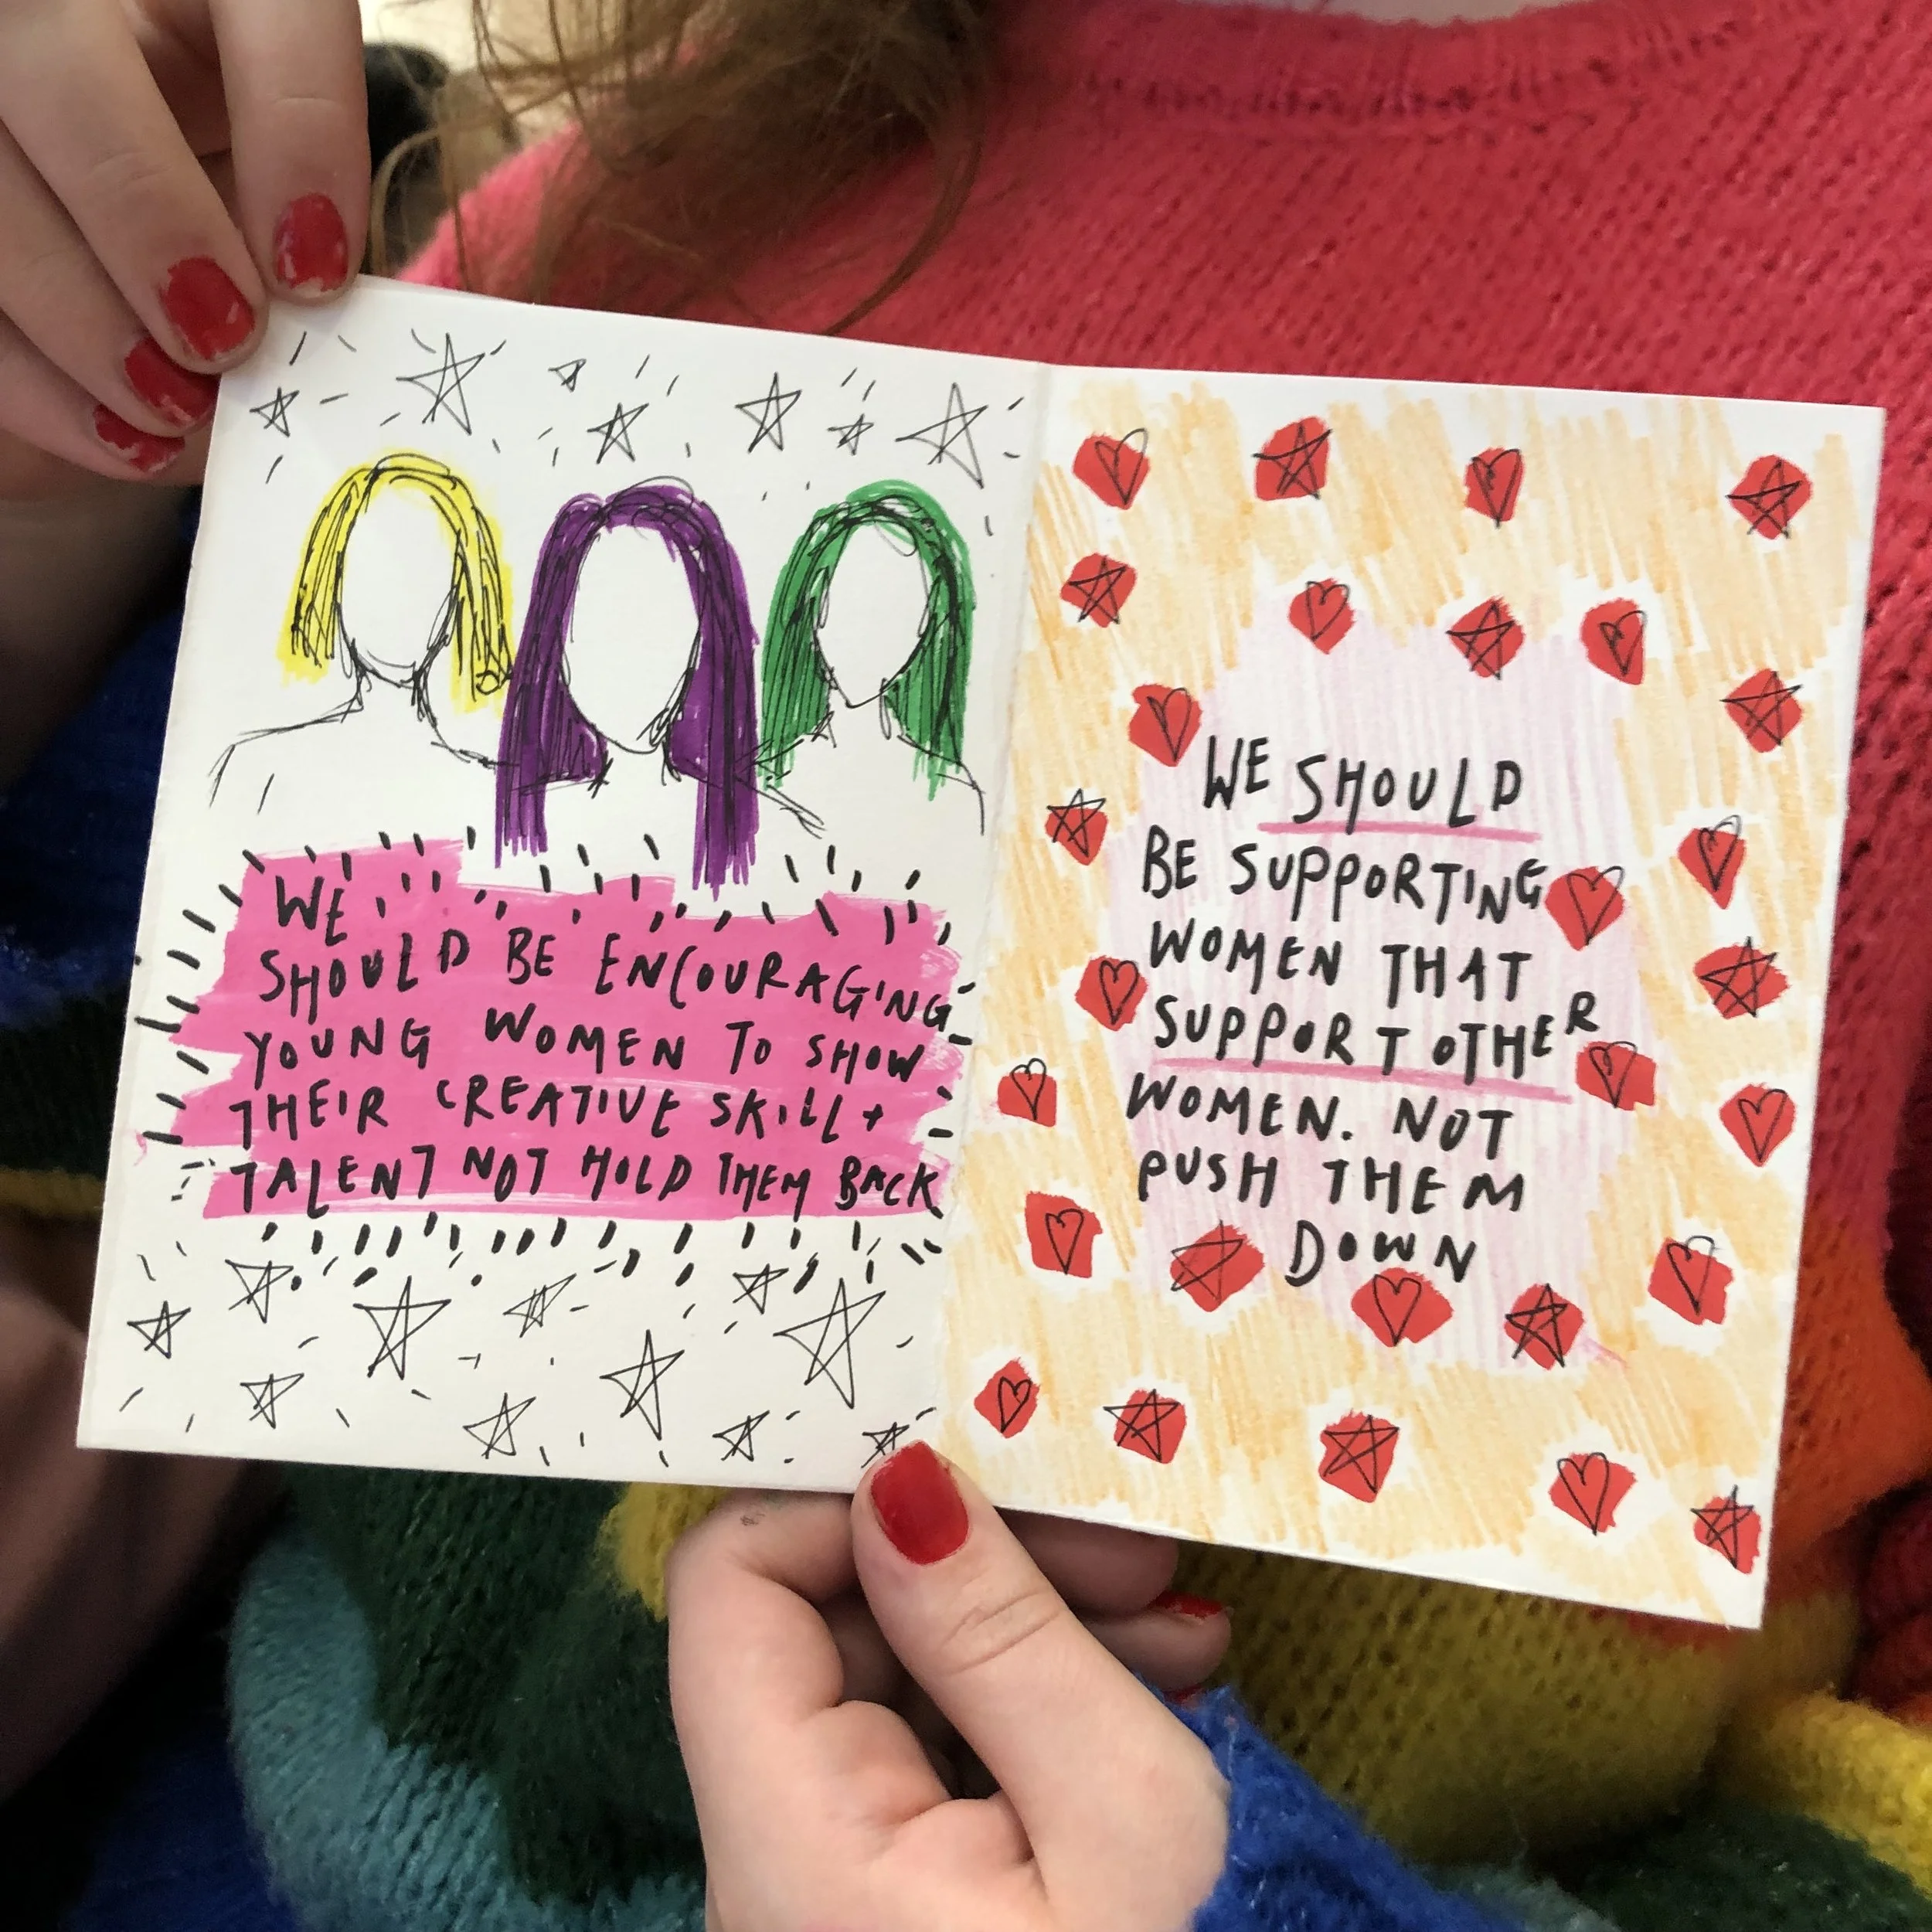 WE
SHOULD BE ENCOURAGING
YOUNG WOMEN TO SHOW
THEIR CREATIVE SKILL +
TALENT NOT HOLD THEM BACK
WE SHOULD
BE SUPPORTING
WOMEN THAT
SUPPORT OTHER
WOMEN. NOT
PUSH THEM
DOWN